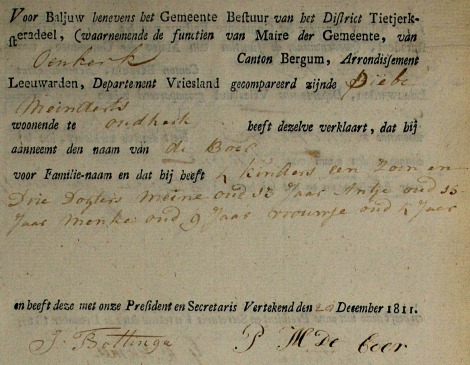 Voor Baljuw benevens het Gemeente Bestuur van het District Tietjerk-
steradeel, (waarnemende de functien van Maire der Gemeente, van
Oenkerk Canton Bergum, Arrondissement
Leeuwarden, Departement Vriesland gecompareerd zijnde Diebe
Meinderts
woonende te oudkerk heeft dezelve verklaart, dat hij
aanneemt den naam van de Boer
voor Familie-naam en dat hij heeft 4 kinders een zoon en
Drie Dogters Meine oud Jaar Antje oud
Jaar Menke oud 9 Jaar vrouwje oud Jaar
en heeft deze met onze President en Secretaris Vertekend den 20 December 1811.
J. Bottinga P M De Boer